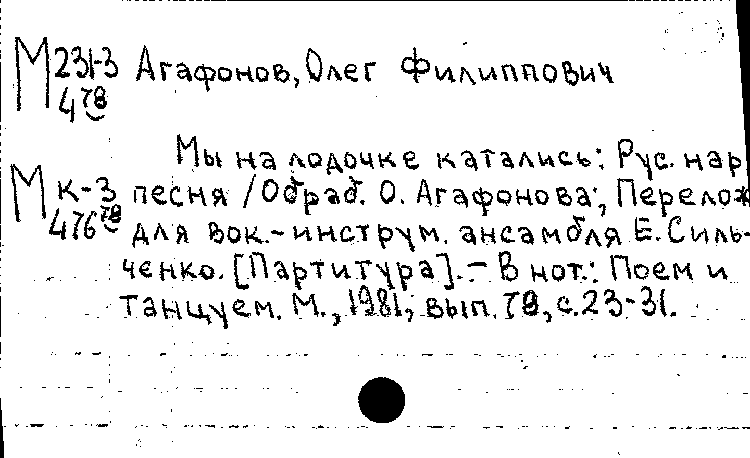 М 231-3 Агафонов, Олег Филиппович
4 78
Мы на лодочке катались: Рус. нар
М к-3 песня / Обраб. О. Агафонова; Перелож
476 78 для вок.-инструм. ансамбля Е. Силь-
ченко. [Партитура]. - В нот.: Поем и
танцуем. М., 1981, вып. 78, с. 23-31.